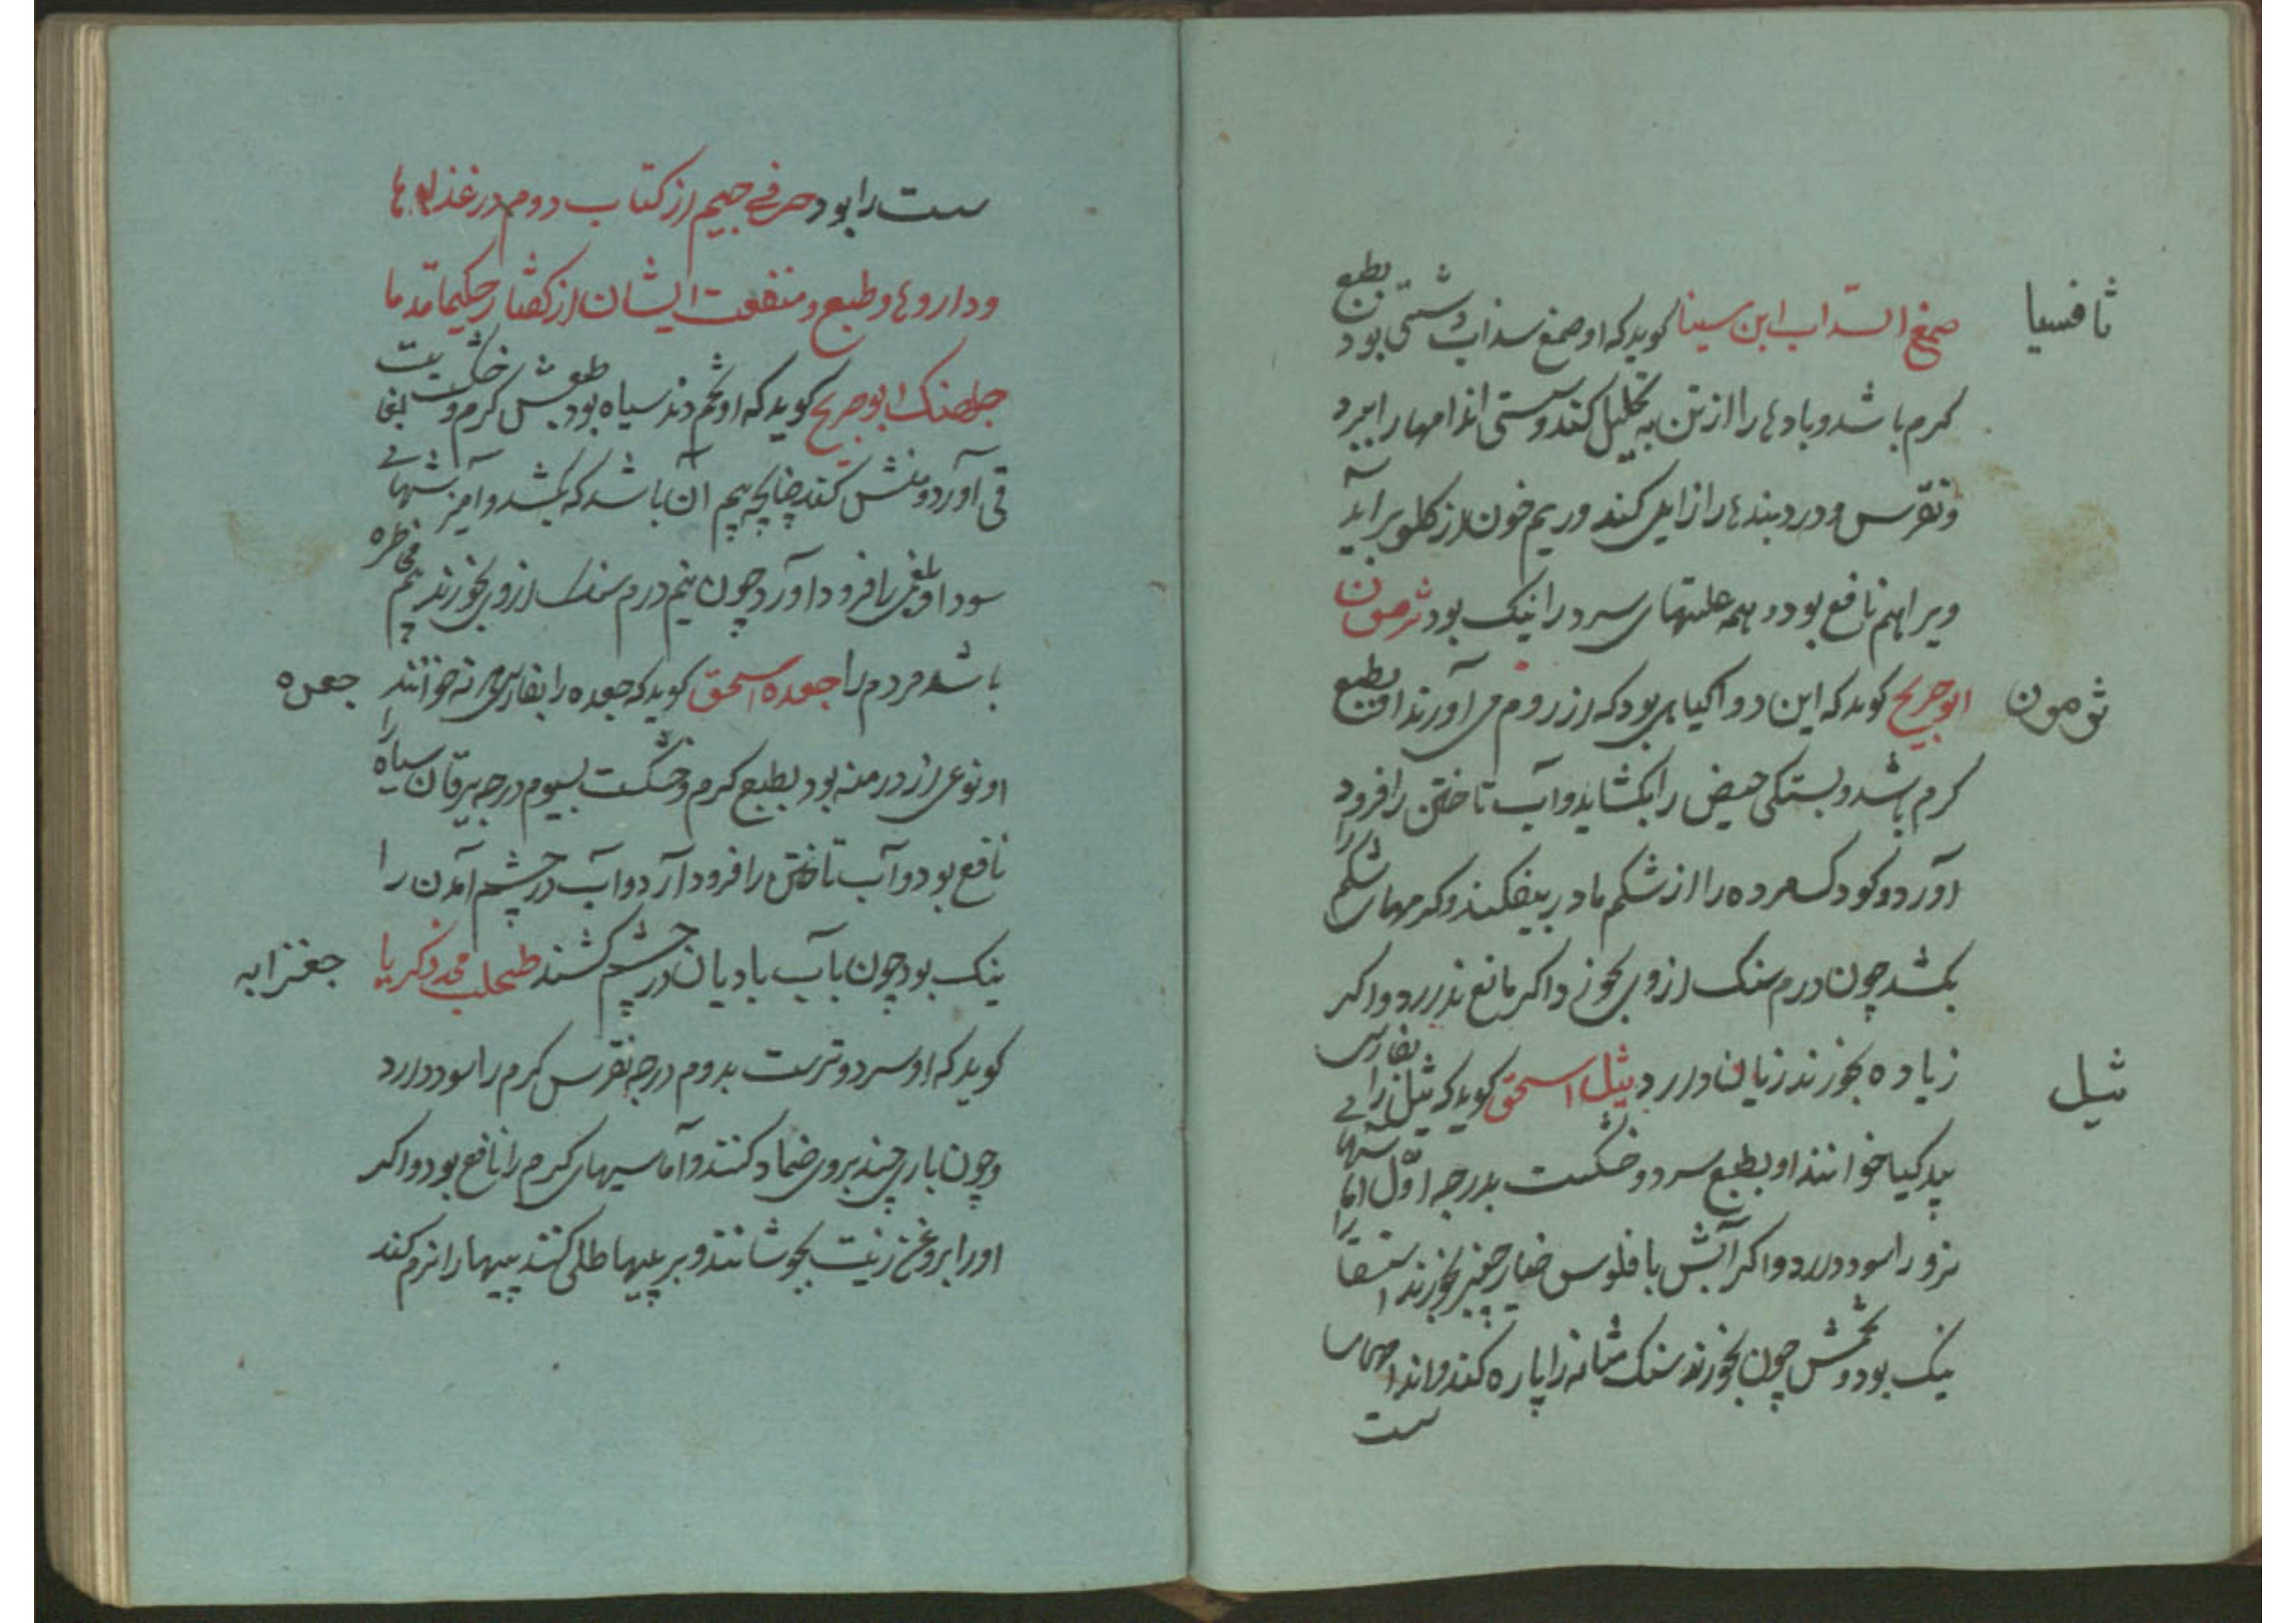 ثافسیا
صمغ السداب ابن سینا کوید که او صمغ سداب دشتی بود بطبع
کرم باشد و بادها را از تن به تحلیل کند و سستی اندامها را ببرد
و نقرس و درد بندها را زایل کند و ریم خون از کلو بر آید
ویرا هم نافع بود و همه علتهای سرد را نیک بود ثرمون
ثومون
ابو جریح کوید که این دوا کیاهی بود که از روم می آورند او بطبع
کرم باشد و بستکی حیض را بکشاید و آب تاختن را فرود
آورد و کودک مرده را از شکم مادر بیفکند و کرمهای شکم را
بکشد چون درم سنک از وی بخورند اکر مانع ندارد و اکر
ثیل
زیاده بخورند زیان دارد ثیل اسحق کوید که ثیل را بفارسی
بید کیا خوانند او بطبع سرد و خشکست بدرجه اول
نرو را سود دارد و اکر آبش با فلوس خیار چنبر بخورند استسقا را
نیک بود و تخمش چون بخورند سنک مثانه را پاره کند و اندامهاء
ست
ست را بود حرف جیم از کتاب دوم در غذاها
و داروها و طبع و منفعت ایشان از کفتار حکیما قدما
جلهنک ابو جریح کوید که او تخم دند سیاه بود طبعش کرم و خشکست
قی آورد و منش کند چنانچه بیم آن باشد که بکشد و
سودا و بلغمی را فرود آورد چون نیم درم سنک از وی بخورند بیم مخاطره
جعده
باشد مردم را جعده اسحق کوید که جعده را بفارسی خوانند
او نوعی از درمنه بود بطبع کرم و خشکست بسیوم درجه یرقان سیاه را
نافع بود و آب تاختن را فرود آرد و آب در چشم آمدن را
جغزابه
نیک بود چون با آب بادیان در چشم کشند طحلب محمد زکریا
کوید که او سرد و ترست بدوم درجه نقرس کرم را سود دارد
و چون باری چند بر وی ضماد کنند و آماسهای کرم را نافع بود و اکر
او را بروغن زیت بجوشانند و بر پیها طلی کنند پیها را نرم کند